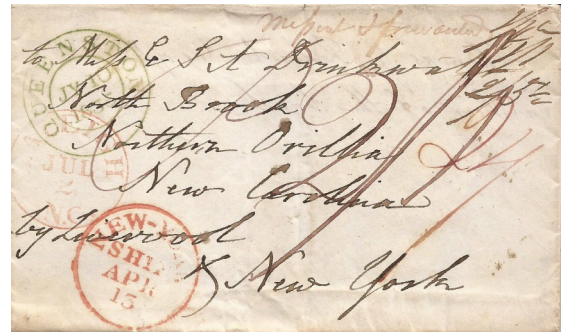 Missent & forwarded
to Miss E S A Drinkwater
North Brook
Northern Orillia
New Carolina
by Liverpool
& New York
QUEENSTON
JY 10
JUL
2
N.C.
NEW-YORK
SHIP
APR
15